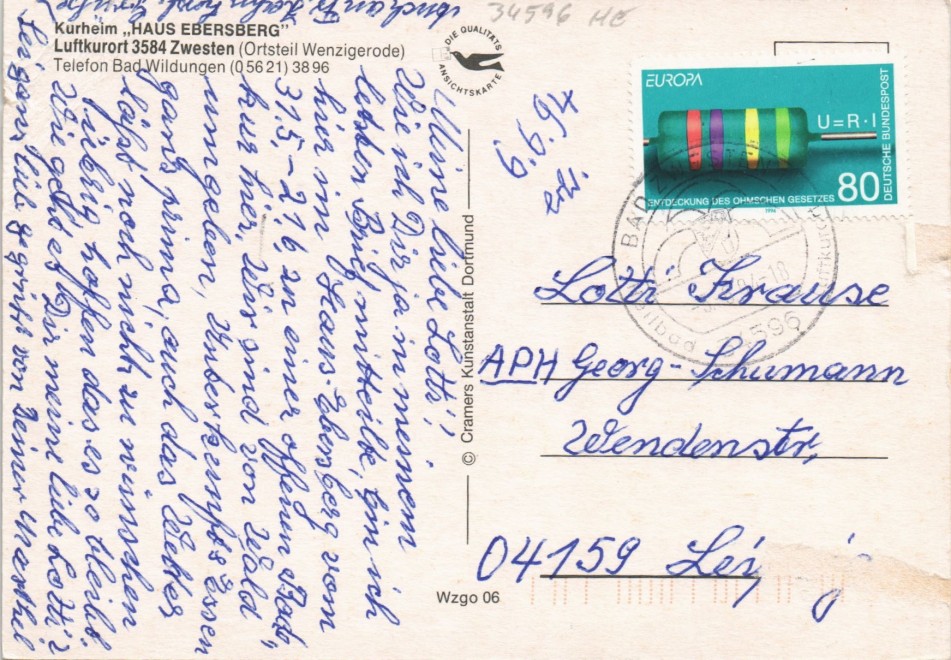 34596 HE
Kurheim „HAUS EBERSBERG"
Luftkurort 3584 Zwesten (Ortsteil Wenzigerode)
Telefon Bad Wildungen (0 56 21) 38 96
DIE QUALITÄTS
ANSICHTSKARTE
EUROPA
U=R·I
DEUTSCHE BUNDESPOST
ENTDECKUNG DES OHMSCHEN GESETZES
80
1994
BAD ZWESTEN
Heilbad
34596
6.6.94
erh.
Meine liebe Lotti!
Wie ich Dir ja in meinem
letzten Brief mitteilte, bin ich
hier im Haus-Ebersberg vom
31.5-21.6. zu einer offenen Bade
kur hier. Wir sind von Wald
umgeben, Unterkunft, Essen
ganz prima, auch das Wetter
läßt noch nicht zu wünschen
übrig, hoffen das es so bleibt.
Wie geht es Dir meine liebe Lotti?
Sei ganz lieb gegrüßt von Deiner Marthel
auch an Fr.
© Cramers Kunstanstalt Dortmund
Lotti Krause
APH Georg-Schumann
Wendenstr,
04159 Leip g
Wzgo 06